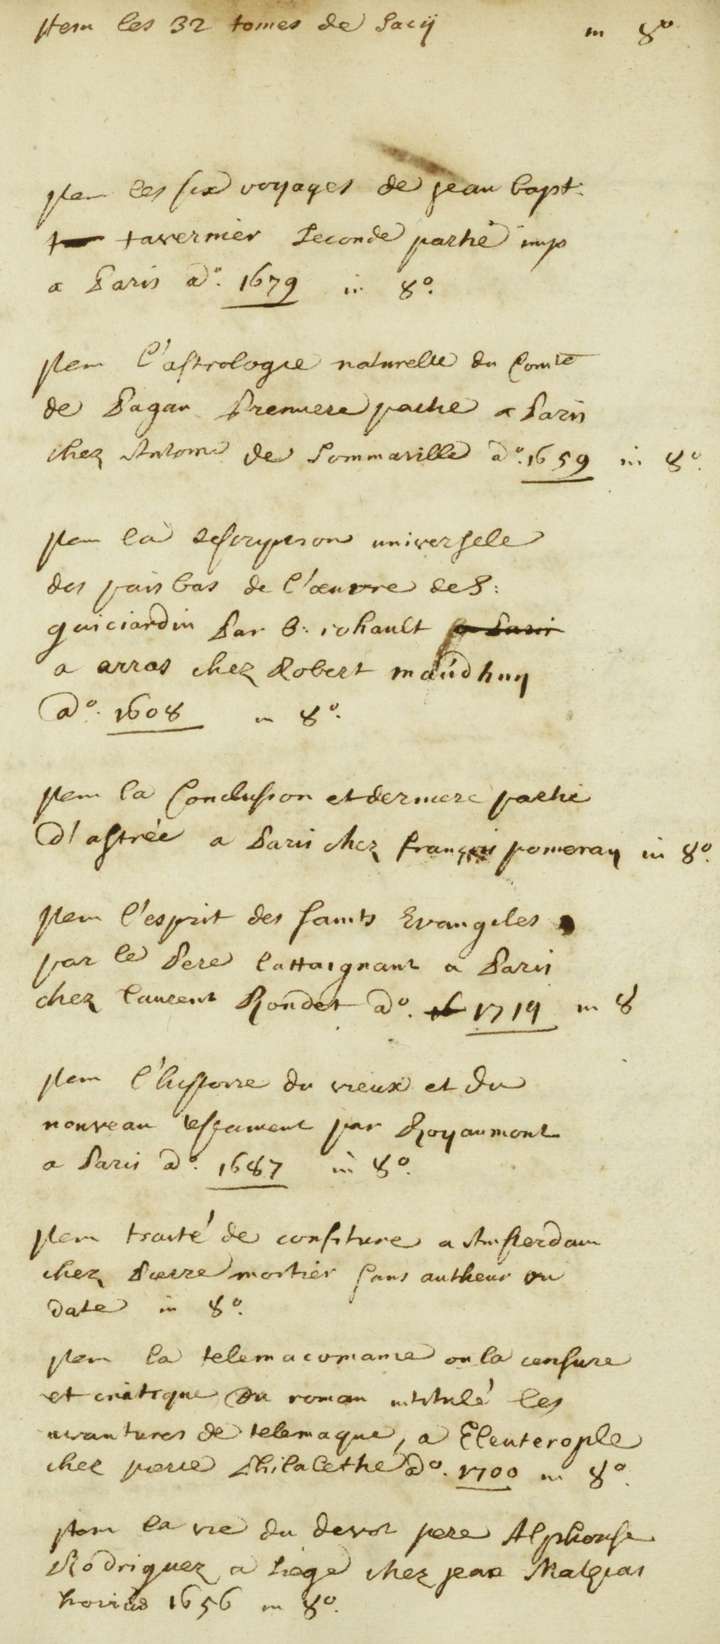 Item les 32 tomes de Sacij in 8º
Item les six voyages de jean bapt:
tavernier seconde partie imp
a Paris aº. 1679 in 8º.
Item l'astrologie naturelle du Comte
de Pagan Premiere partie a Paris
chez Antoine de Sommaville aº. 1659 in 8º.
Item la descripsion universele
des pais bas de l'œuvre de S:
guiciardin Par B: rohault a Paris
a arras chez Robert maudhuy
aº. 1608 in 8º.
Item la Conclusion et derniere partie
d'astrée a Paris chez françois pomeray in 8º.
Item l'esprit des saints Evangiles
par le Pere lattaignant a Paris
chez laurent Rondet aº. 16 1719 in 8
Item l'histoire du vieux et du
nouveau testament par Royaumont
a Paris aº. 1687 in 8º.
Item traité de confiture a Amsterdam
chez Pierre mortier sans autheur ou
date in 8º.
Item la telemacomanie ou la censure
et critique du roman intitulé les
avantures de telemaque, a Eleuterople
chez pierre Philalethe aº. 1700 in 8º.
Item la vie du devot pere Alphonse
Rodriguez a Liege chez jean Matgias
hovius 1656 in 8º.